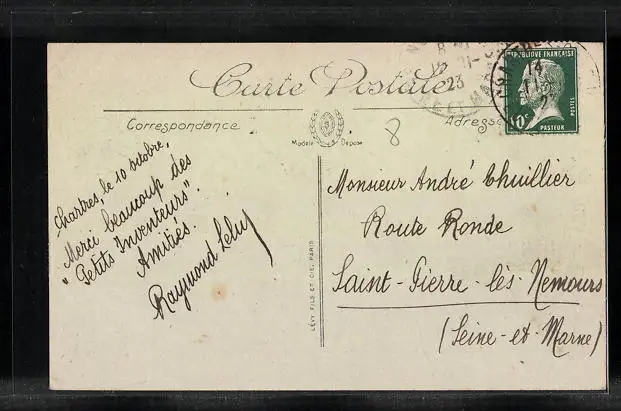 Carte Postale
Correspondance
Modèle Déposé
Adresse
RÉPUBLIQUE FRANÇAISE
10c
POSTES
PASTEUR
23
ET MAR
14
8
Chartres, le 10 octobre,
Merci beaucoup des
"Petits Inventeurs".
Amitiés.
Raymond Lévy
LÉVY FILS ET CIE, PARIS
Monsieur André Thuillier
Route Ronde
Saint-Pierre-lès-Nemours
(Seine-et-Marne)